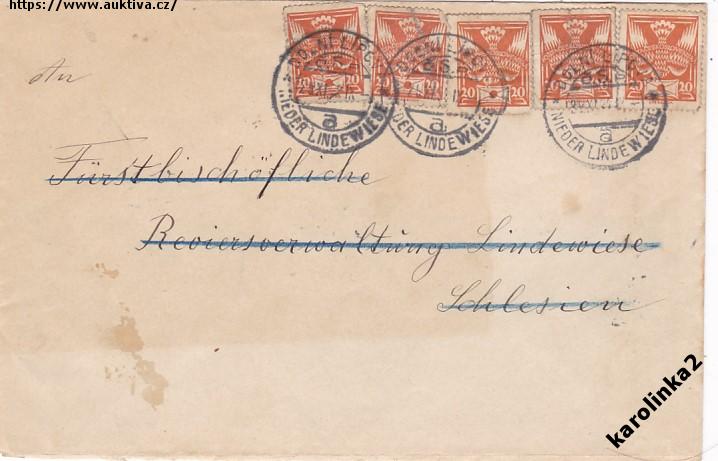 https://www.auktiva.cz/
20 20 20 20 20
NIEDER LINDEWIESE
a
DER LINDEWIESE
a
NIEDER LINDEWIESE
a
An
Fürstbischöfliche
Revierverwaltung Lindewiese
Schlesien
karolinka2